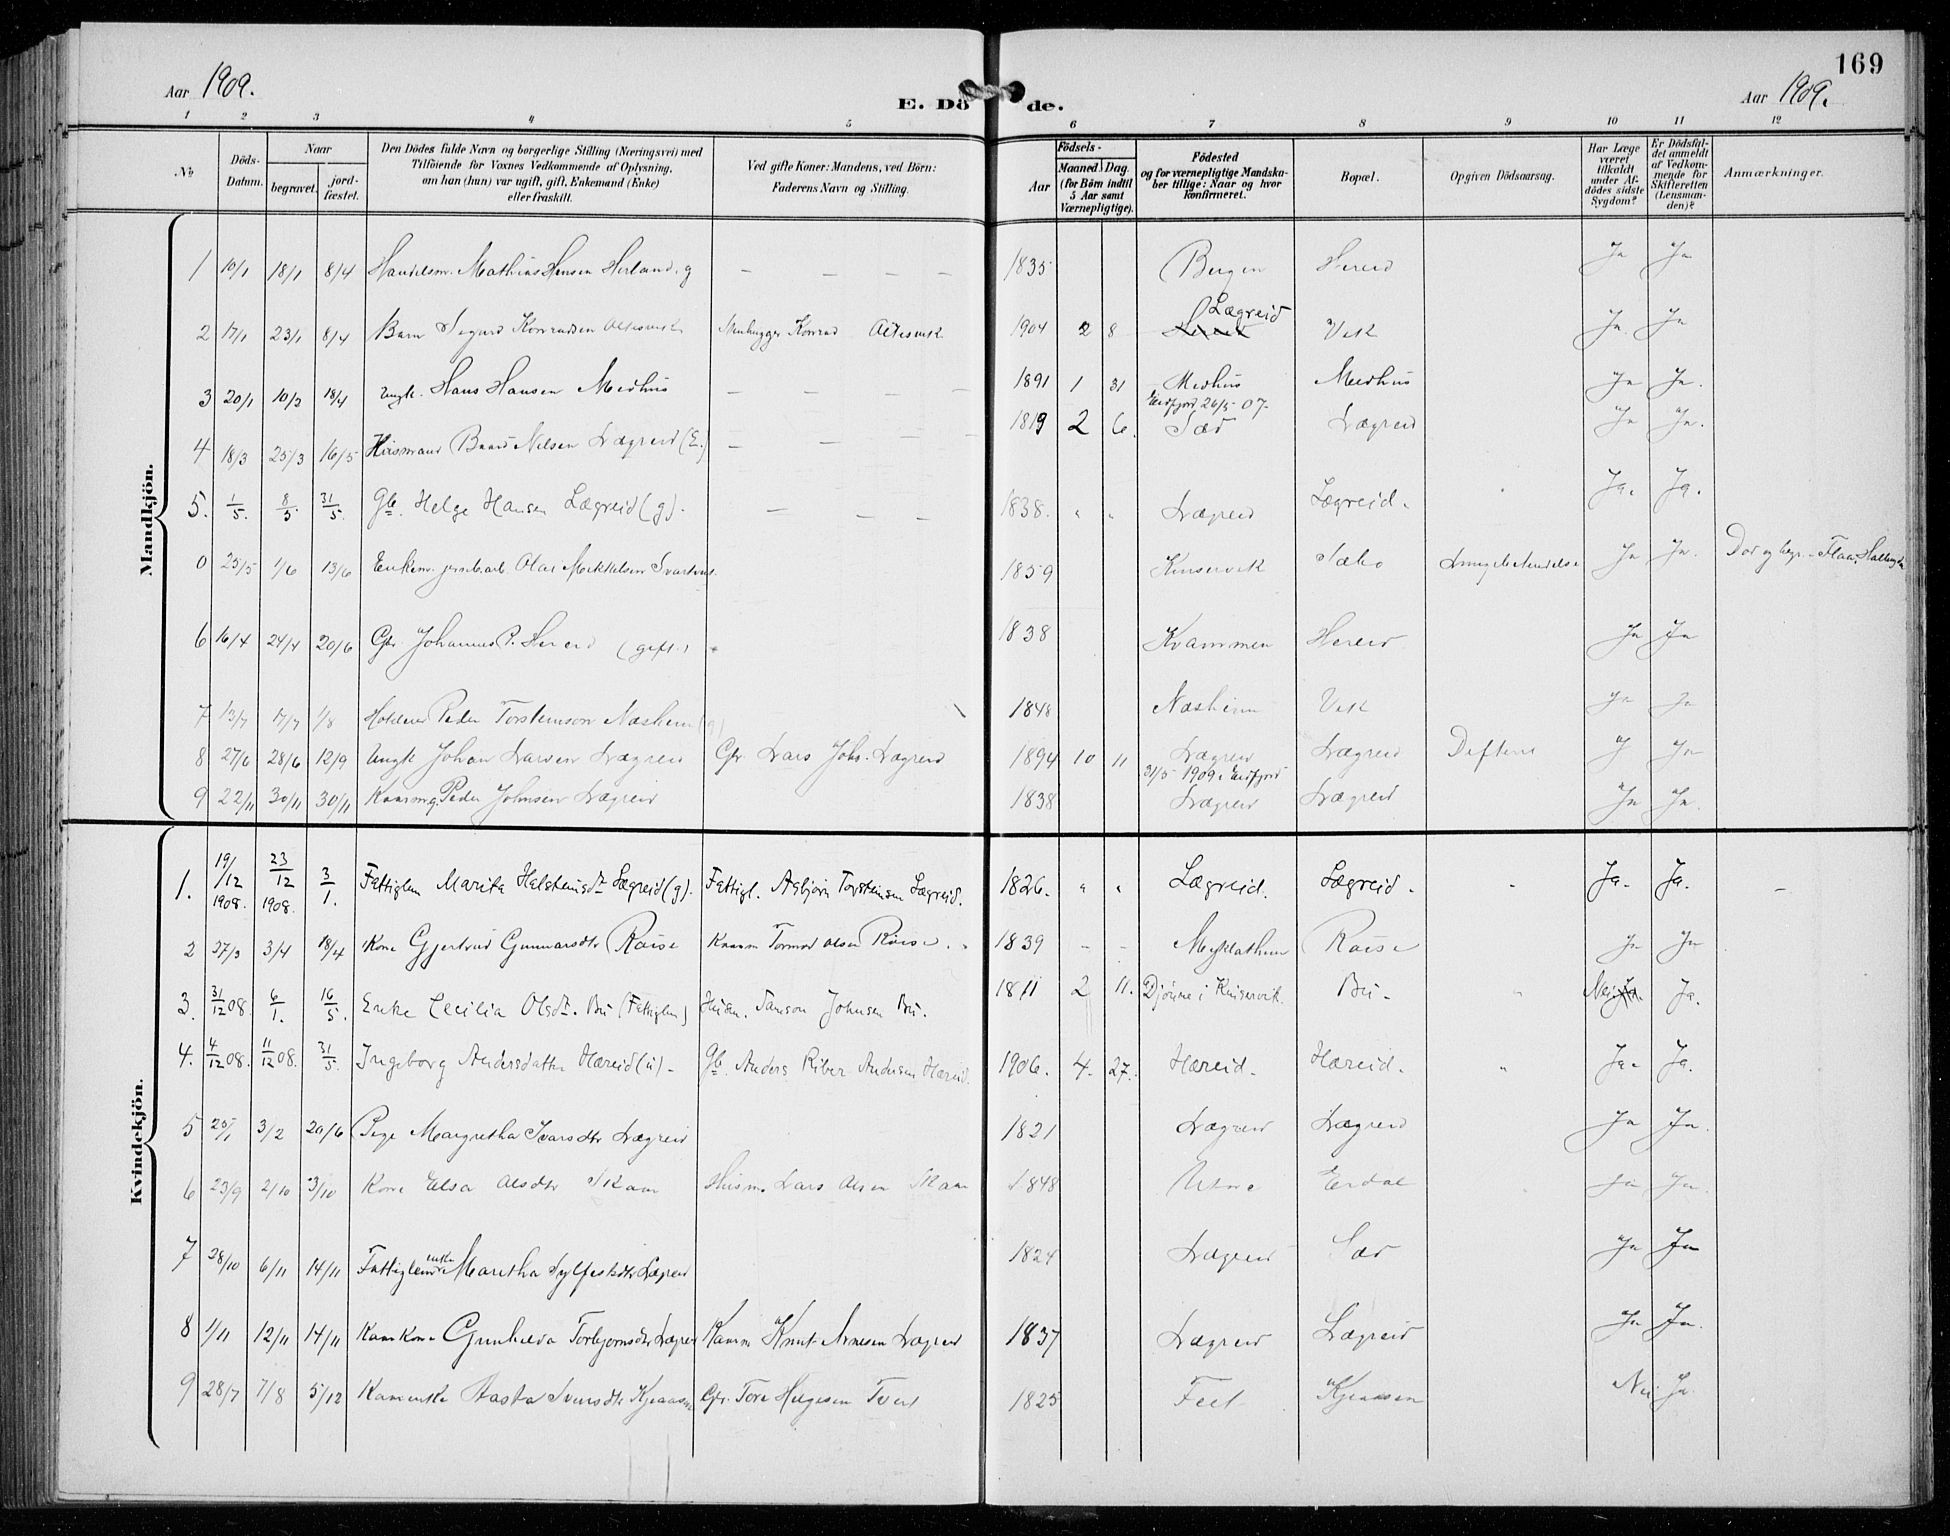 169
Aar 1909.
E. Dö de.
Aar 1909.
1 2 3 4 5 6 7 8 9 10 11 12
No
Döds-Datum.
Naar
begravet.
jord-fæstet.
Den Dödes fulde Navn og borgerlige Stilling (Næringsvei) med
Tilföiende for Voxnes Vedkommende af Oplysning,
om han (hun) var ugift, gift, Enkemand (Enke)
eller fraskilt.
Ved gifte Koner: Mandens, ved Börn:
Faderens Navn og Stilling.
Födsels-
Aar
Maaned Dag.
(for Börn indtil
5 Aar samt
Værnepligtige).
Födested
og for værnepligtige Mandska-
ber tillige: Naar og hvor
konfirmeret.
Bopæl.
Opgiven Dödsaarsag.
Har Læge
været
tilkaldt
under Af-
dödes sidste
Sygdom?
Er Dödsfal-
det anmeldt
af Vedkom-
mende for
Skifteretten
(Lensman-
den)?
Anmærkninger.
Mandkjön.
1 10/1 18/1 8/4 Handelsm. Mathias Hansen Herland. g — — — — 1835 Bergen Hereid Ja Ja
2 17/1 23/1 8/4 Barn Sigurd Konradsen Konrad 1904 2 8 Lægreid Vik Ja Ja
3 20/1 10/2 18/4 Ungk. Hans Hansen Medhus — — — — 1891 1 31 Medhus Eidfjord 26/5 07 Medhus Ja Ja.
4 18/3 25/3 16/5 Husmand Baard Nilsen Lægreid (E.) — — — — 1819 2 6. Sæd Lægreid Ja Ja.
5. 1/5. 8/5 31/5. Gb. Helge Hansen Lægreid (g). — — — 1838. " " Lægreid Lægreid. Ja. Ja.
0 25/5 1/6 13/6 Enkem. jernb.arb. Olai Mikkelsen 1859 Kinservik Sæbo Ja Ja. Död og begr. i Flaa,
6 16/4 24/4 20/6 Gbr Johannes P. Hereid (gift.) 1838 Kvammen Hereid Ja Ja
7 13/7 17/7 1/8 Holder Peder Torsteinson Næsheim (g) 1848 Næsheim Vik Ja Ja
8 27/6 28/6 12/9 Ungk Johan Larsen Lægreid Gbr Lars Johs. Lægreid 1894 10 11 Lægreid 31/5 1909 Eidfjord Lægreid Difteri J Ja
9 22/11 30/11 30/11 Kaarmg. Peder Johnsen Lægreid 1838 Lægreid Lægreid Ja Ja.
Kvindekjön.
1. 19/12 1908. 23/12 1908. 3/1. Fattiglem Marita Halsteinsdt. Lægreid (g). Fattigl. Asbjørn Torsteinsen Lægreid. 1826. " " Lægreid. Lægreid. " Ja. Ja. —
2 27/3 3/4 18/4 Kone Gjertrud Gunnarsdtr Røise Kaarm Tormod Olsen Røise. 1839 — — Røise Ja Ja
3. 31/12 08. 6/1. 16/5. Enke Cecilia Olsdt. Bu (Fattiglem) Husm. Samson Johnsen Bu. 1811 2 11. Djønne i Kinservik. Bu. " Nei Ja. Ja.
4. 4/12 08. 11/12 08. 31/5. Ingeborg Andersdatter Hæreid (u). Gb. Anders Riber Andersen Hæreid. 1906. 4. 27. Hæreid. Hæreid. " Ja. Ja.
5 25/1 3/2 20/6 Pige Margretha Ivarsdtr Lægreid 1821 Lægreid Lægreid Ja Ja.
6 23/9 2/10 3/10 Kone Elsa Olsdtr Skaar Husm. Lars Olsen Skaar 1848 Utne Erdal Ja Ja.
7 28/10 6/11 14/11 Fattiglem enke Maritha Sylfestdtr Lægreid 1824 Lægreid Sæd Ja Ja
8 1/11 12/11 14/11 Kaarkone Gunhilda Torbjørnsdtr Lægreid Kaarm Knut Arnesen Lægreid 1837 Lægreid Lægreid Ja Ja.
9 28/7 7/8 5/12 Kaarenke Aasta Iversdtr Kjeaasen Gbr. Tore Helgesen Tveit 1825 Feet Kjeaasen Nei Ja.